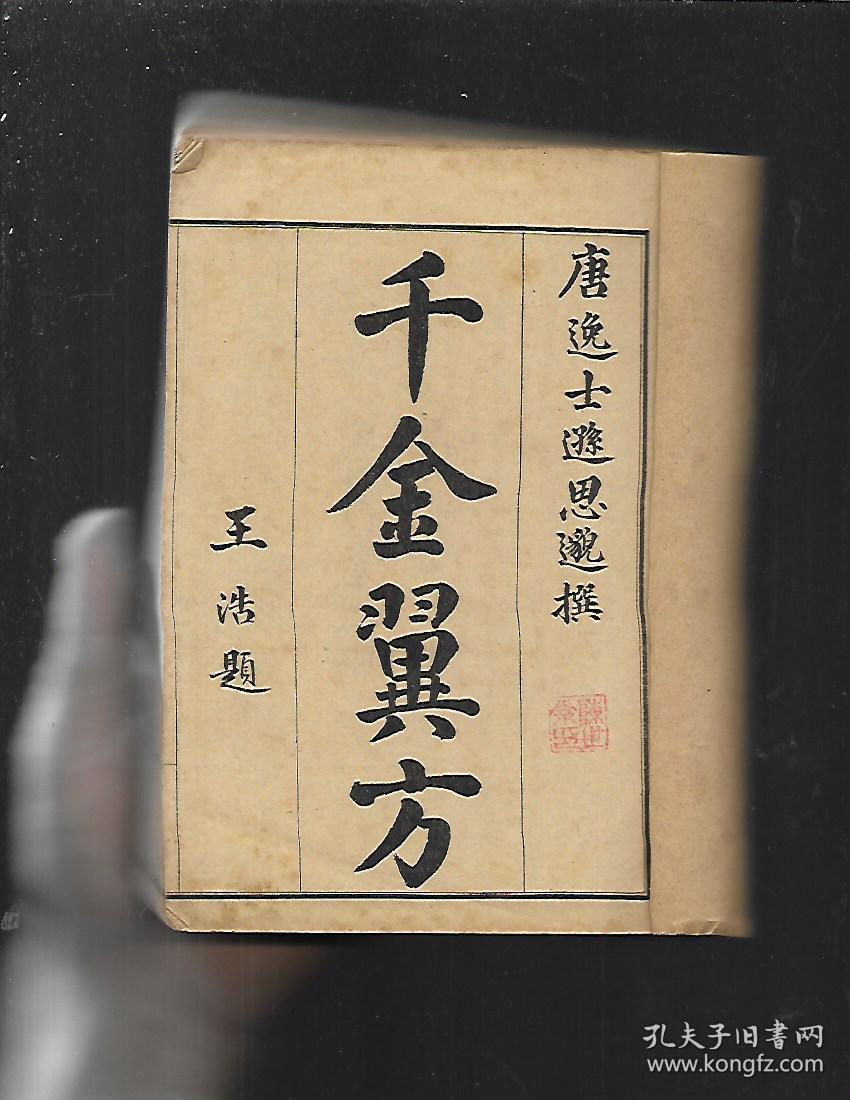 唐逸士遜思邈撰
千金翼方
王浩題
孔夫子旧书网
www.kongfz.com